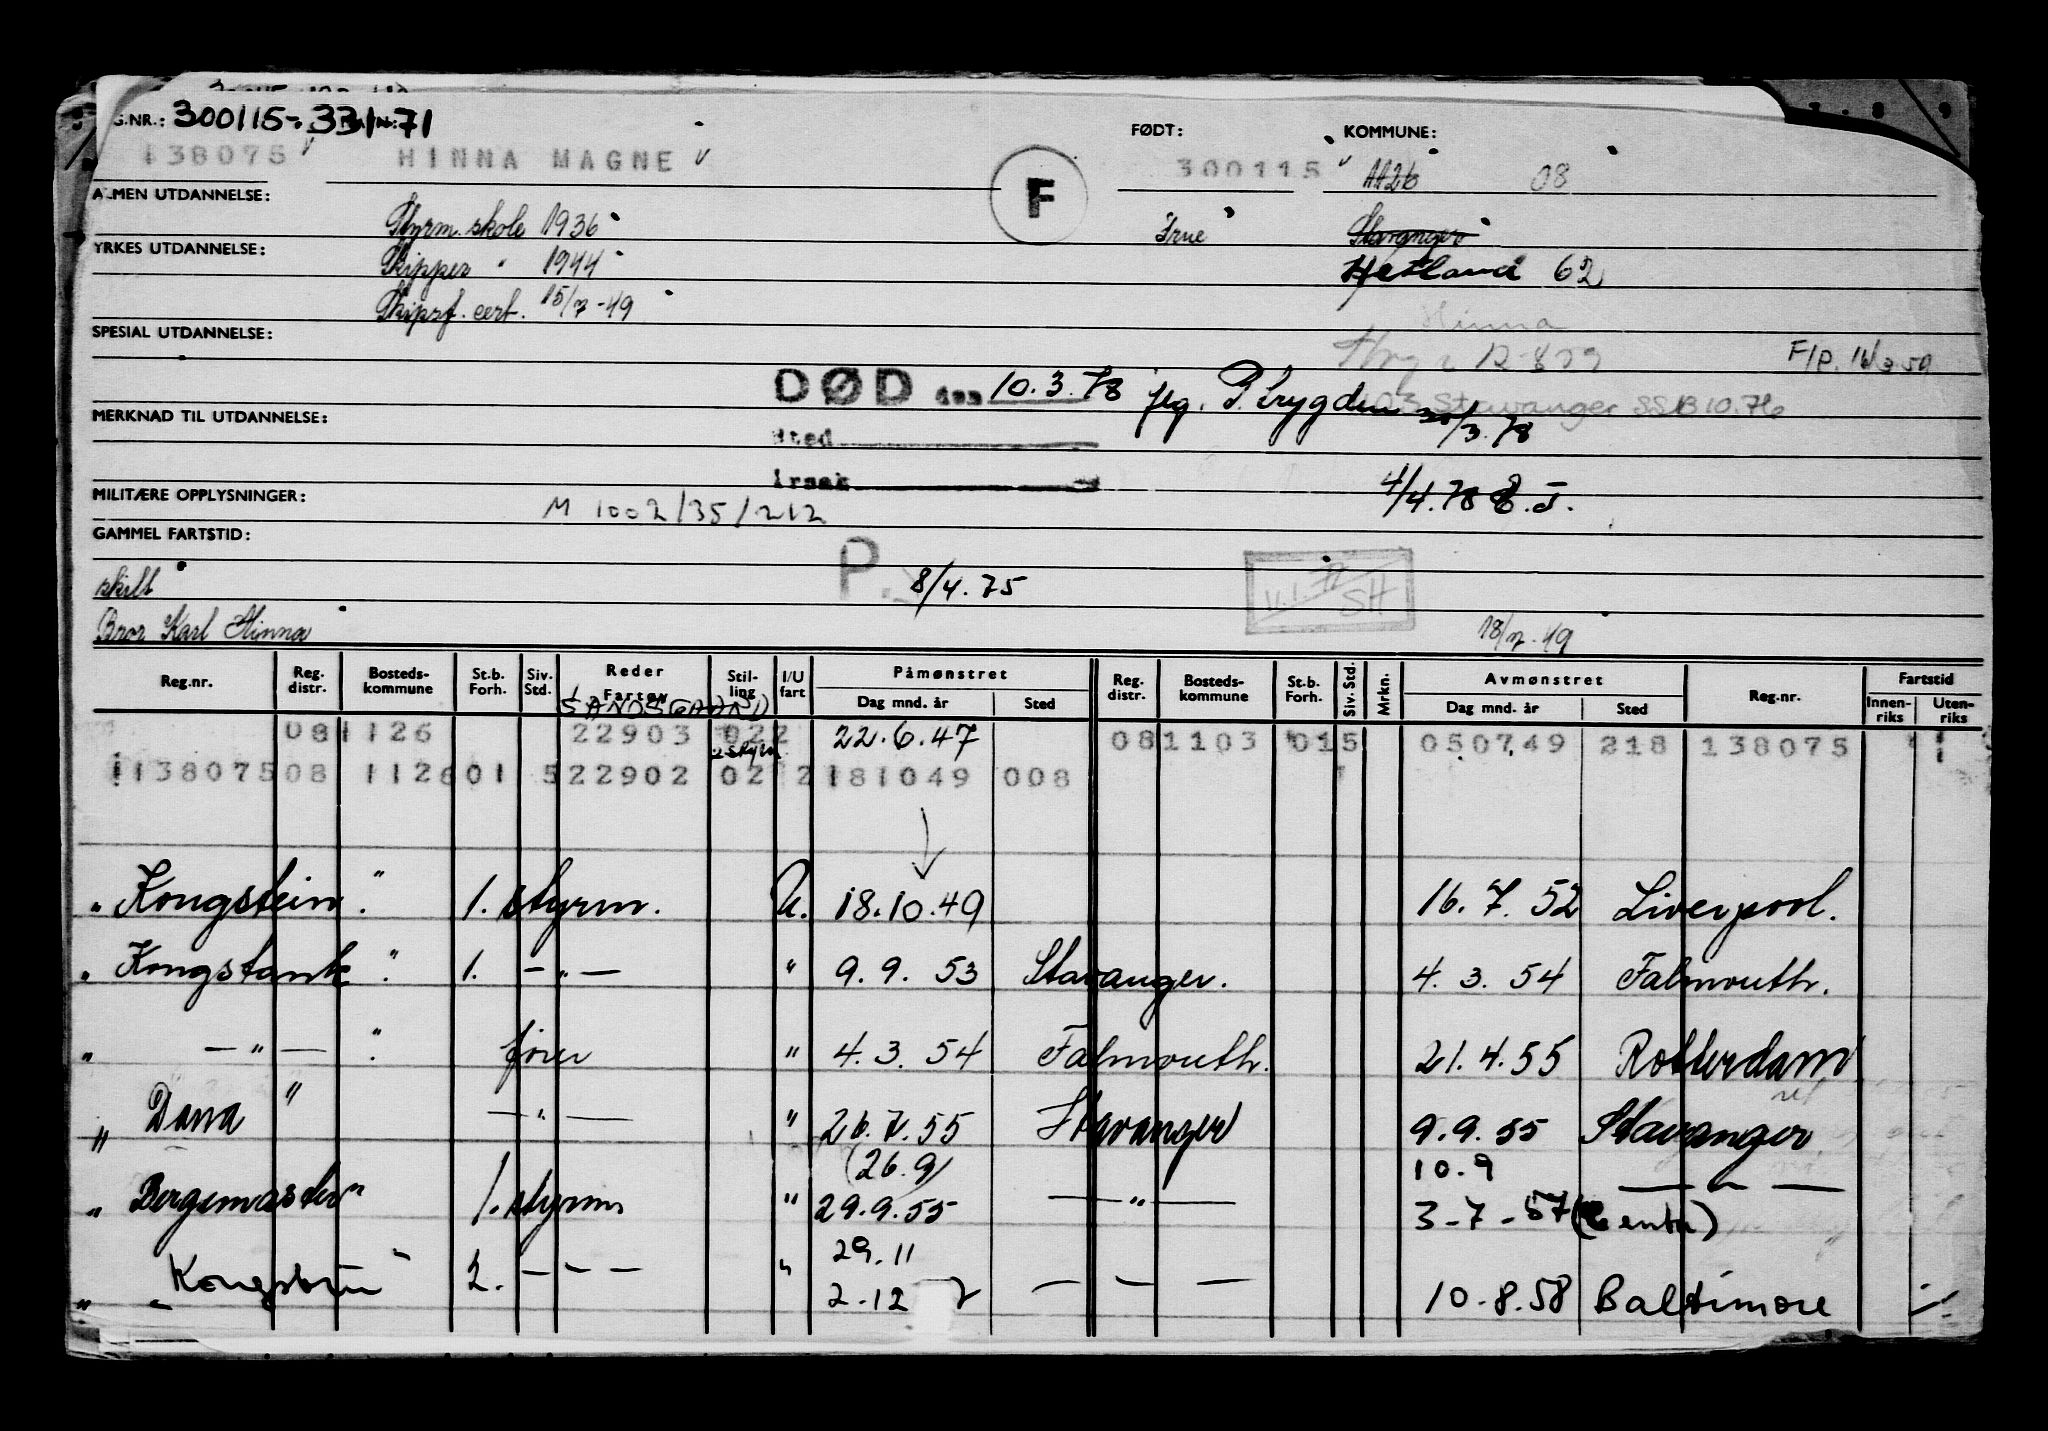 G.NR.: 300115-33171 FØDT: KOMMUNE:
138075 HINNA MAGNE 300115 1126 08
F
ALMEN UTDANNELSE:
Styrm. skole 1936 Stavanger
YRKES UTDANNELSE:
Skipper " 1944 Hetland 62
Skipsf. cert. 15/7-49
Hinna
SPESIAL UTDANNELSE:
F/P. 16/3 59
DØD den 10.3.78 jfg. P.trygden 30/3.78
103 Stavanger SSB 10.76
MERKNAD TIL UTDANNELSE:
Sted
Årsak
4/4.78
MILITÆRE OPPLYSNINGER:
M 1002/35/212
GAMMEL FARTSTID:
P. 8/4.75
skilt SH
Bror Karl Hinna 18/7-49
Reg.nr. Reg. distr. Bosteds-kommune St.b. Forh. Siv. Std. Reder Fartøy Stil-ling I/U fart Påmønstret Dag mnd. år Sted Reg. distr. Bosteds-kommune St.b. Forh. Siv. Std. Mrkn. Avmønstret Dag mnd. år Sted Reg.nr. Fartstid Innen-riks Uten-riks
SANDSGAARD
08 1126 22903 022 22.6.47 08 1103 01 5 050749 218 138075
2 styrm
138075 08 1126 01 5 22902 02 2 181049 008
" Kongstein " 1. styrm. U. 18.10.49 16.7.52 Liverpool.
" Kongstank " 1. — " — " 9.9.53 Stavanger. 4.3.54 Falmouth.
" — " — " fører " 4.3.54 Falmouth. 21.4.55 Rotterdam
" Dana " — " — " 26.7.55 Stavanger 9.9.55 Stavanger
(26.9) 10.9
" Bergemaster " 1. styrm " 29.9.55 — " — 3-7-57 — " —
29.11
" " 2. — " — " 2.12 — " — 10-8.58 Baltimore